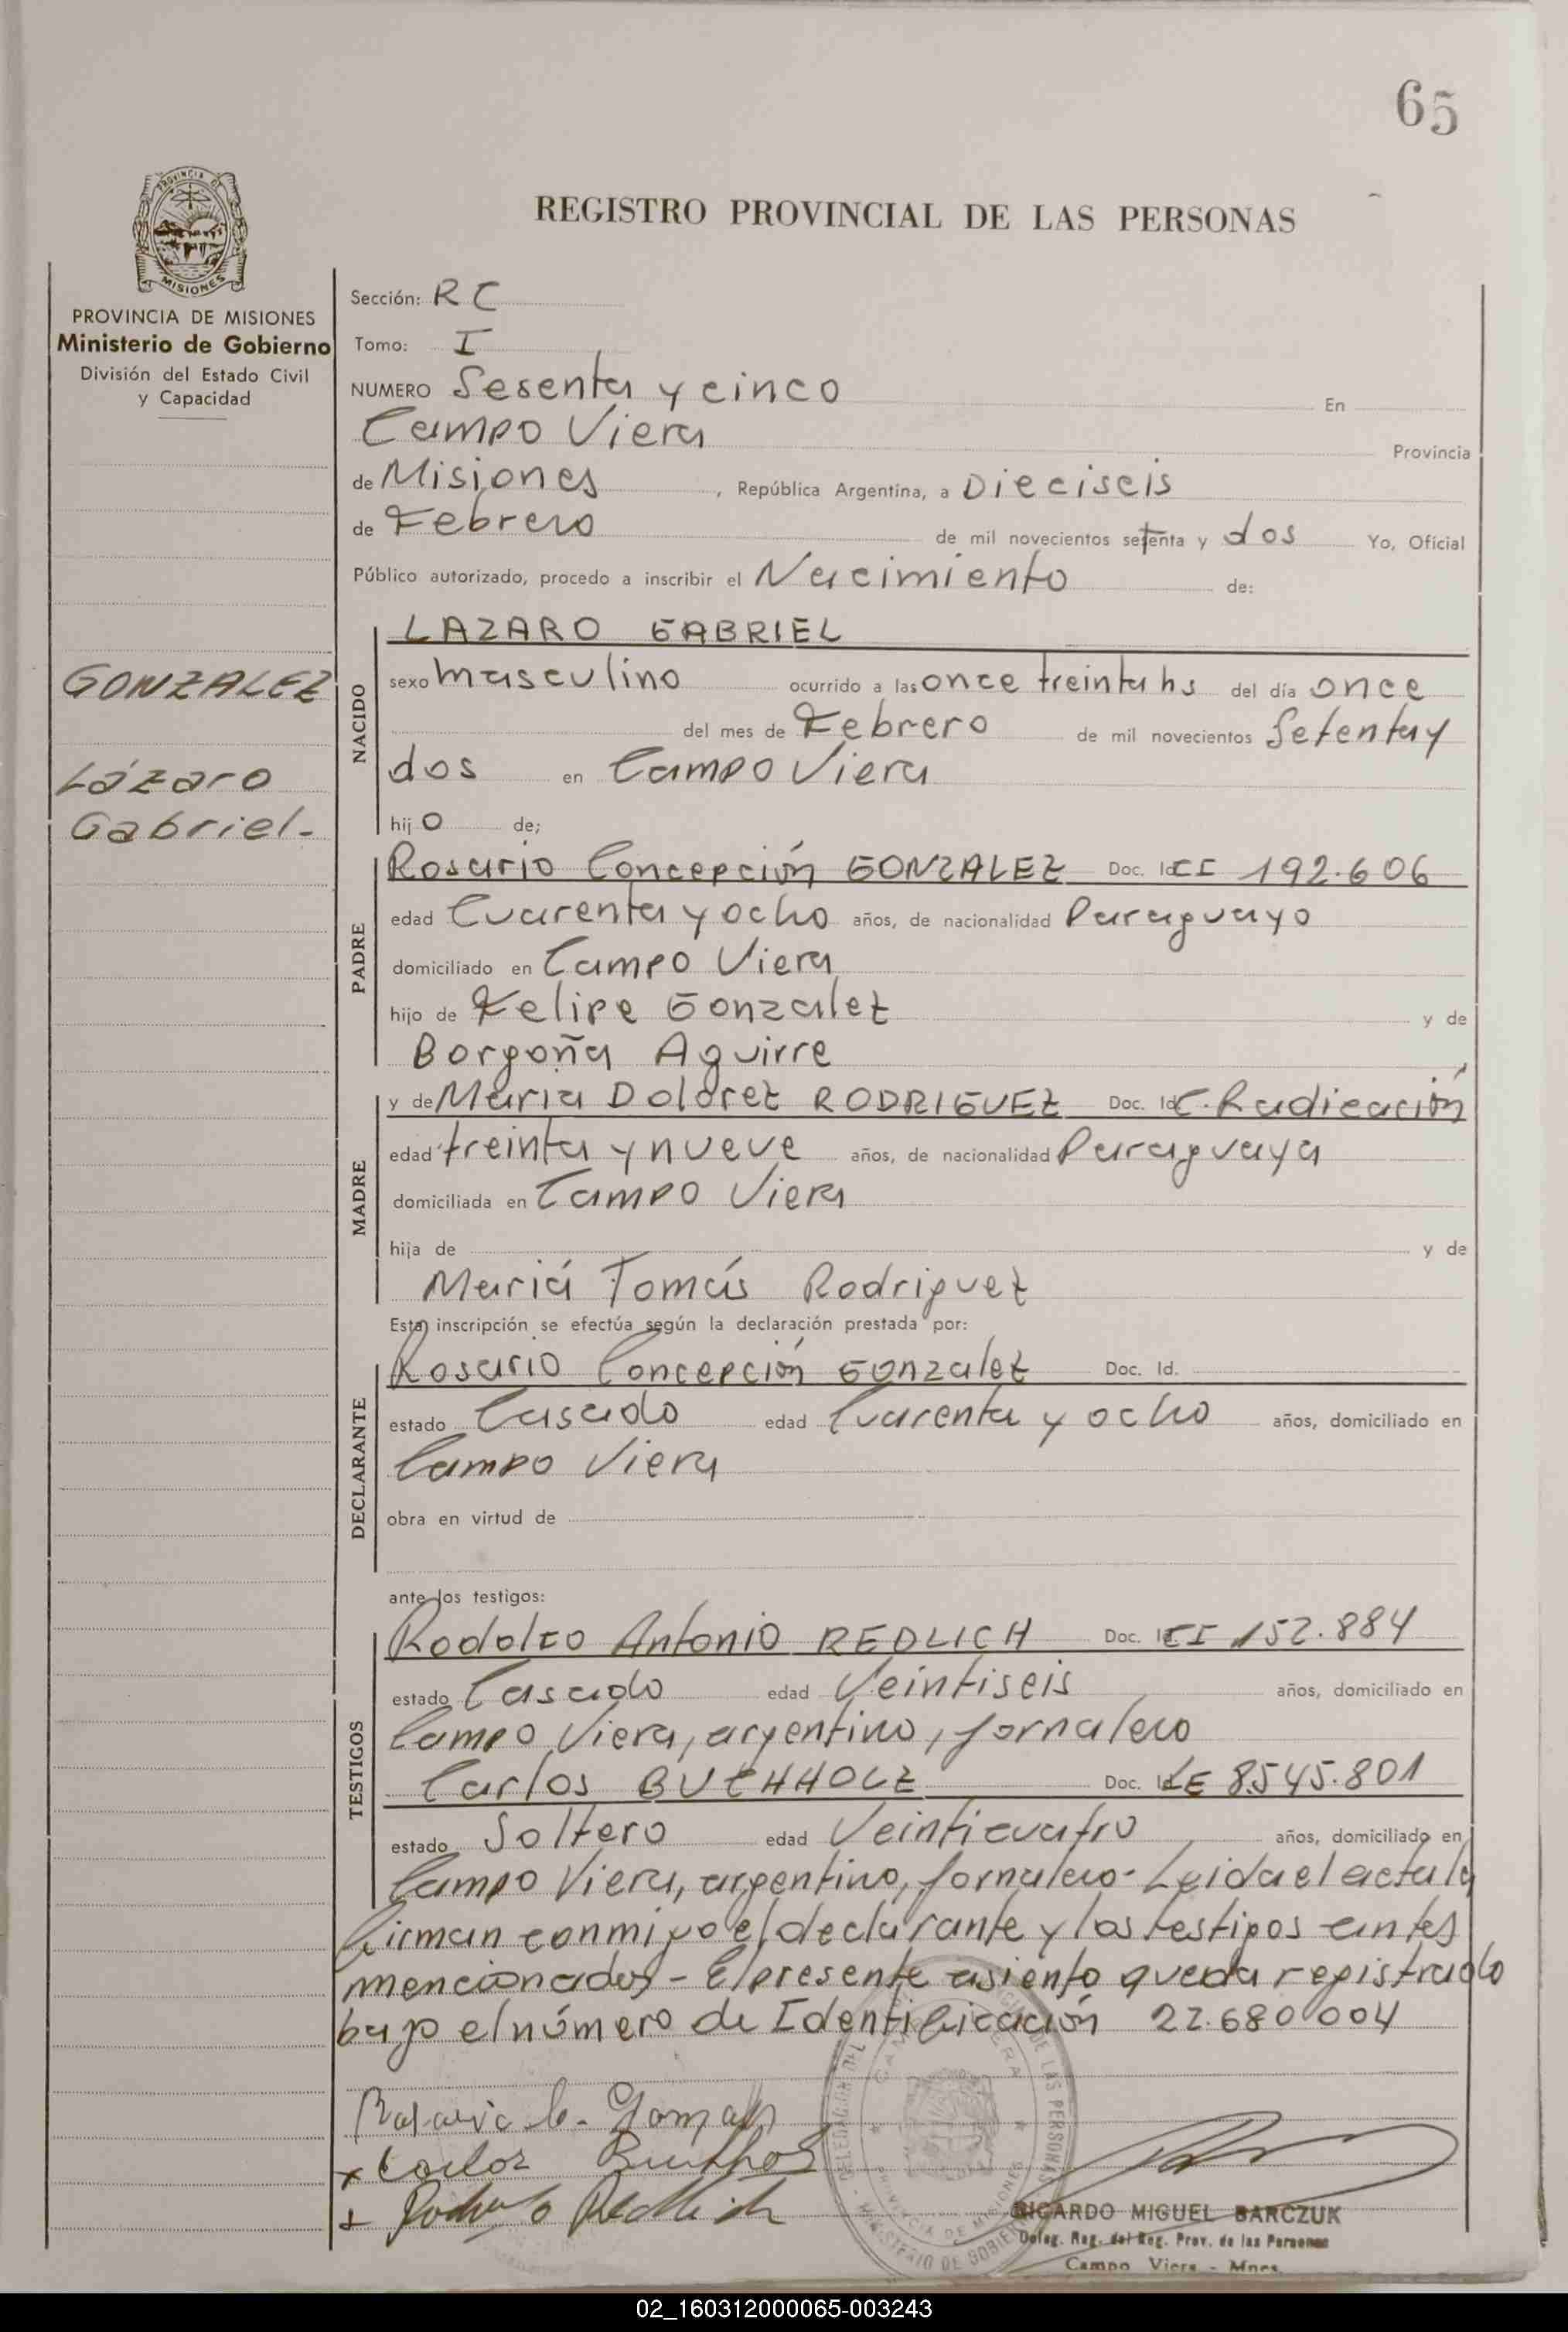 65
REGISTRO PROVINCIAL DE LAS PERSONAS
MISIONES
PROVINCIA DE MISIONES
Ministerio de Gobierno
División del Estado Civil
y Capacidad
GONZALEZ
Lázaro
Gabriel-
Sección: RC
Tomo: I
NUMERO Sesenta y cinco En
Campo Viera Provincia
de Misiones, República Argentina, a Dieciseis
de Febrero de mil novecientos setenta y dos Yo, Oficial
Público autorizado, procedo a inscribir el Nacimiento de:
NACIDO
LAZARO GABRIEL
sexo masculino ocurrido a las once treinta hs del día once
del mes de Febrero de mil novecientos Setenta y
dos en Campo Viera
hijo de;
PADRE
Rosario Concepción GONZALEZ Doc. Id CI 192.606
edad Cuarenta y ocho años, de nacionalidad Paraguayo
domiciliado en Campo Viera
hijo de Felipe Gonzalez y de
Borgoña Aguirre
MADRE
y de Maria Dolorez RODRIGUEZ Doc. Id C. Radicación
edad treinta y nueve años, de nacionalidad Paraguaya
domiciliada en Campo Viera
hija de y de
Mariá Tomás Rodriguez
Esta inscripción se efectúa según la declaración prestada por:
DECLARANTE
Rosario Concepción Gonzalez Doc. Id.
estado Casado edad Cuarenta y ocho años, domiciliado en
Campo Viera
obra en virtud de
ante los testigos:
TESTIGOS
Rodolfo Antonio REDLICH Doc. Id CI 152.884
estado Casado edad Veintiseis años, domiciliado en
Campo Viera, argentino, jornalero
Carlos BUCHHOLZ Doc. Id LE 8.545.801
estado Soltero edad Veinticuatro años, domiciliado en
Campo Viera, argentino, jornalero- Leida el acta la
firman conmigo el declarante y los testigos antes
mencionados - El presente asiento queda registrado
bajo el número de Identificación 22.680.004
Rosario C. Gonzalez
x Carlos Buchholz
x Rodolfo Redlich
RICARDO MIGUEL BARCZUK
Deleg. Reg. del Reg. Prov. de las Personas
Campo Viera - Mnes.
02_160312000065-003243